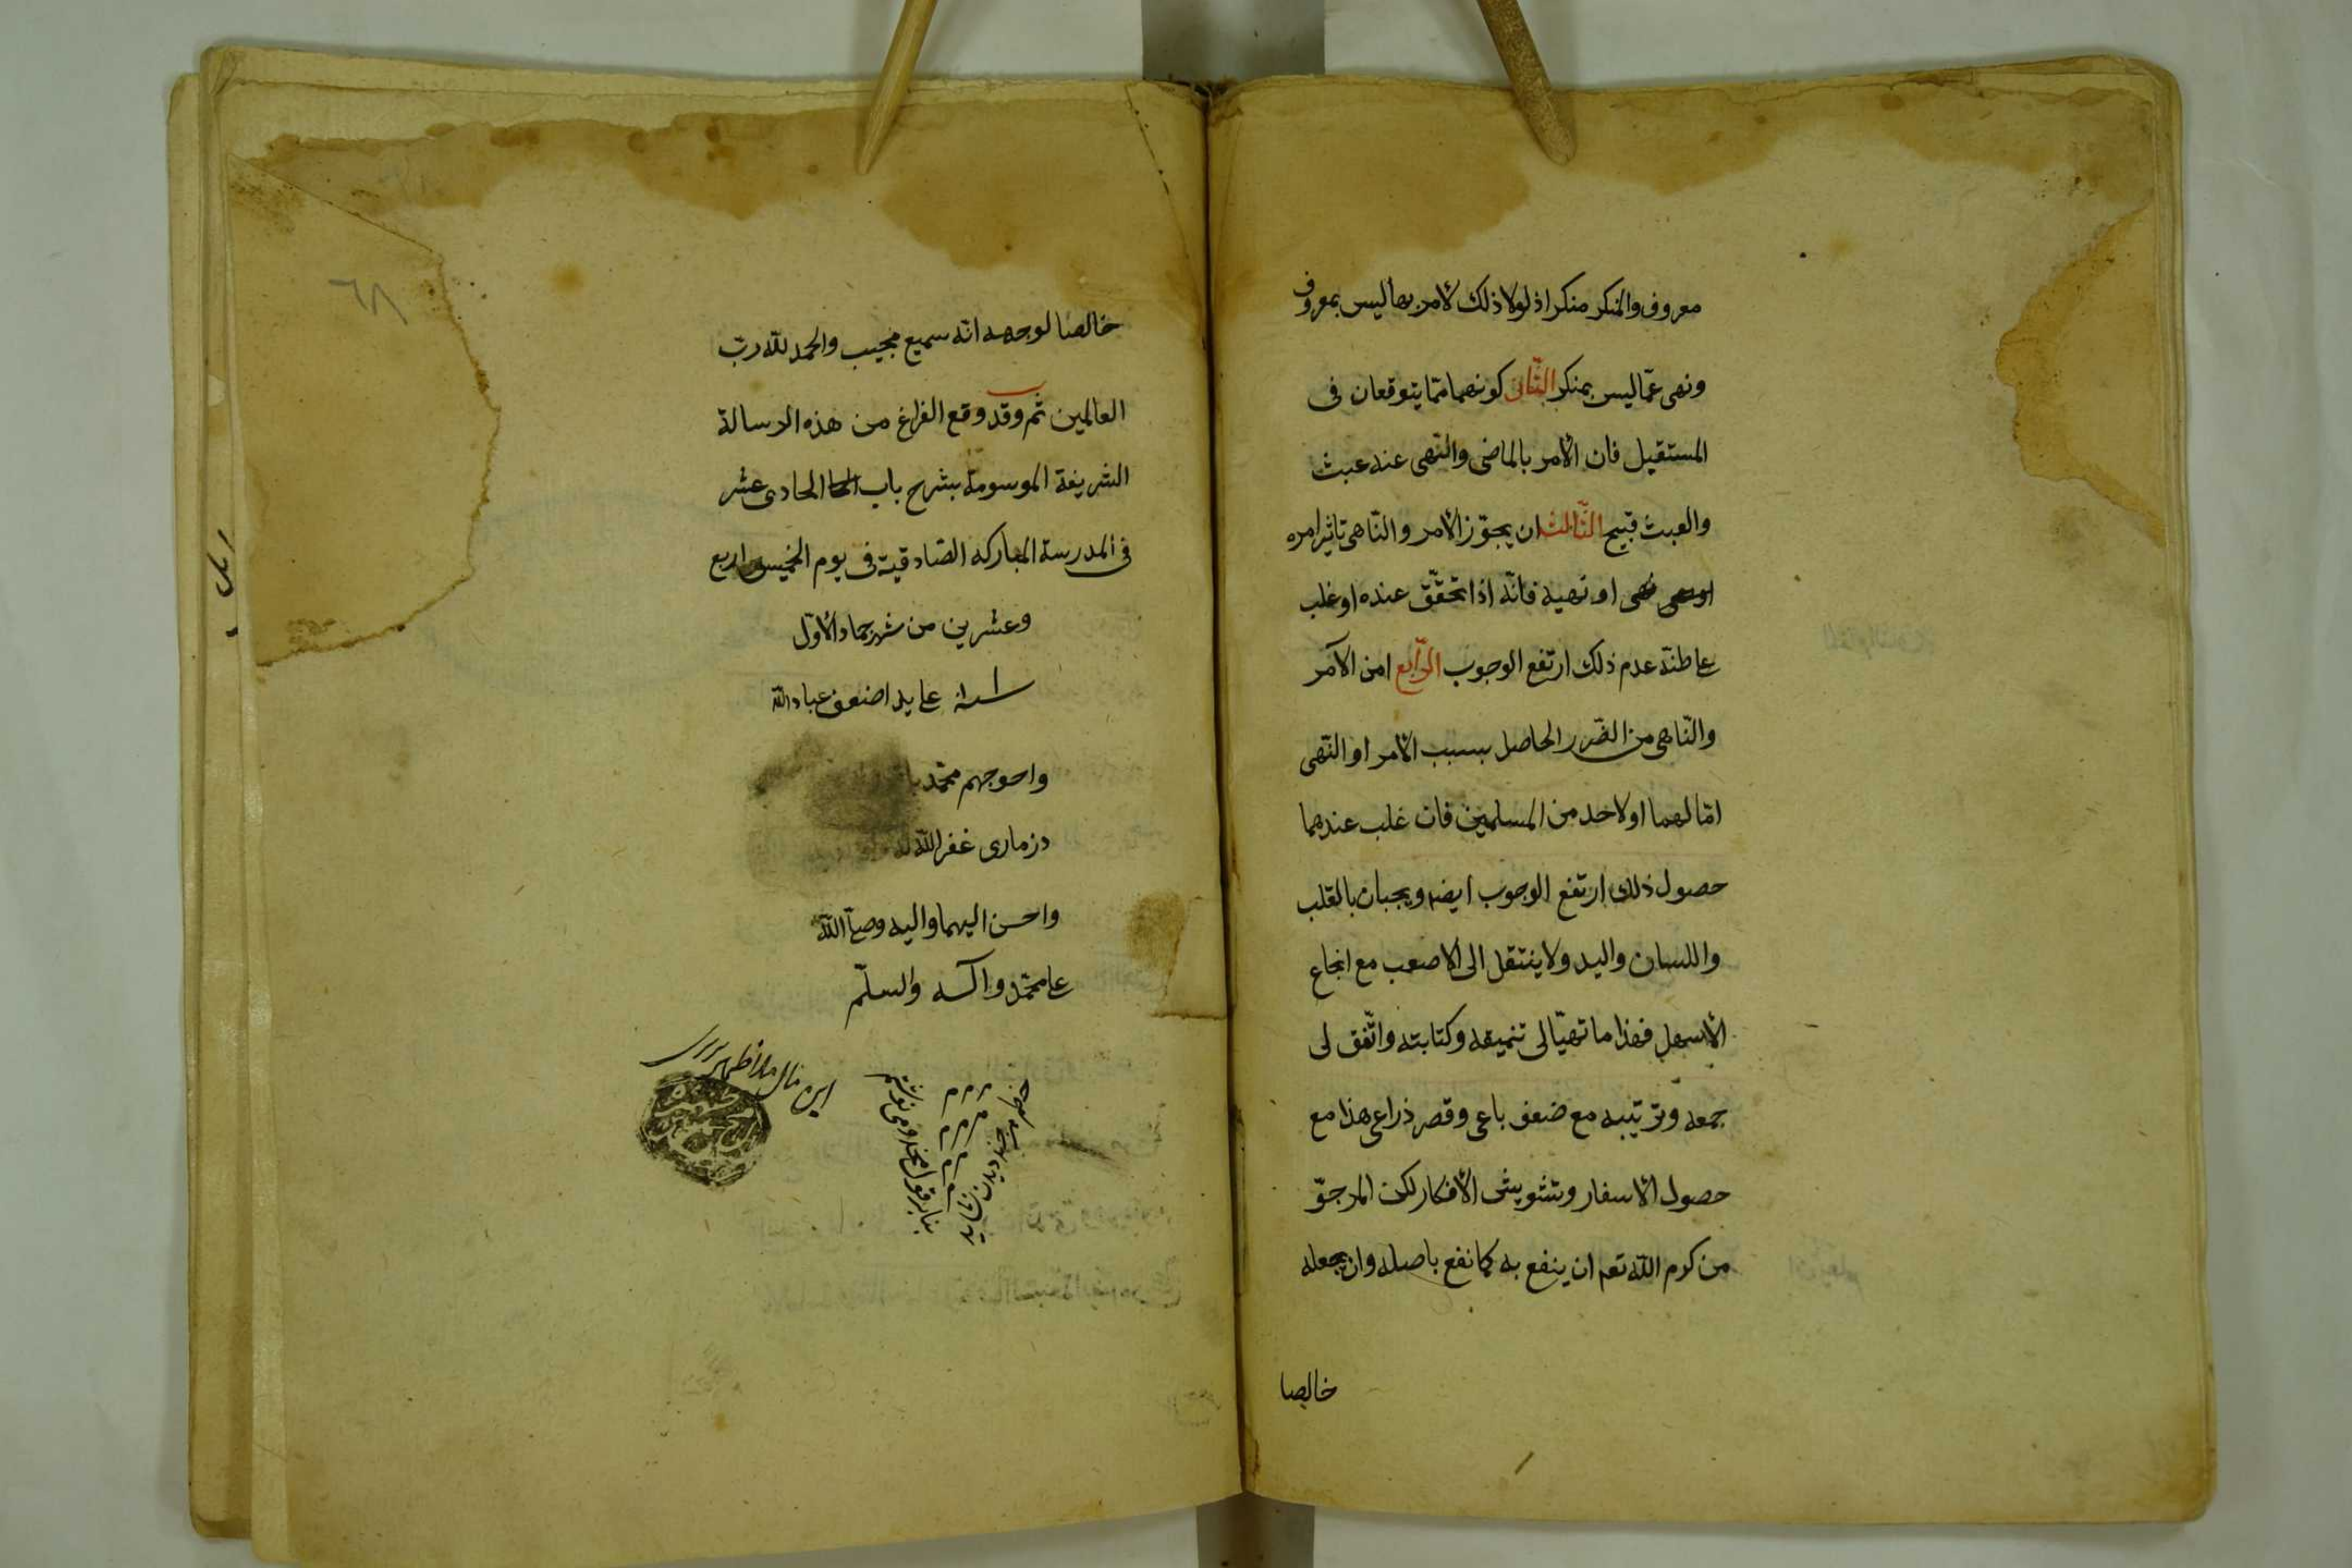 معروف والمنکر منکرا اذ لولا ذلک لأمر بما لیس بمعروف
ونهی عمّا لیس بمنکر الثّانی کونهما ممّا یتوقعان فی
المستقبل فان الأمر بالماضی والنّهی عنه عبث
والعبث قبیح الثّالث ان یجوّز الأمر والنّاهی تاثیر امره
او نهیه فانّه اذا تحقّق عنده او غلب
علی ظنّه عدم ذلک ارتفع الوجوب الرّابع امن الآمر
والنّاهی من الضّرر الحاصل بسبب الأمر او النّهی
امّا لهما او لاحد من المسلمین فان غلب عندهما
حصول ذلک ارتفع الوجوب ایضا ویجبان بالقلب
واللسان والید ولا ینتقل الی الاصعب مع انجاع
الأسهل فهذا ما تهیّا لی تنمیقه وکتابته واتّفق لی
جمعه وترتیبه مع ضعف باعی وقصر ذراعی هذا مع
حصول الأسفار وتشویش الأفکار لکن المرجوّ
من کرم اللّه تعم ان ینفع به کما نفع باصله وان یجعله
خالصا
٦٨
خالصا لوجهه انّه سمیع مجیب والحمد للّه ربّ
العالمین تم وقد وقع الفراغ من هذه الرسالة
الشریفة الموسومة بشرح باب الحا الحادی عشر
فی المدرسة المبارکه الصّادقیة فی یوم الخمیس اربع
وعشرین من شهر جماد الأوّل
علی ید اضعف عباد اللّه
واحوجهم محمّد
دزماری غفر اللّه له
واحسن الیهما والیه وصلّی اللّه
علی محمّد وآله والسلّم
این مال
بنابر قول مخدومی نوشتم